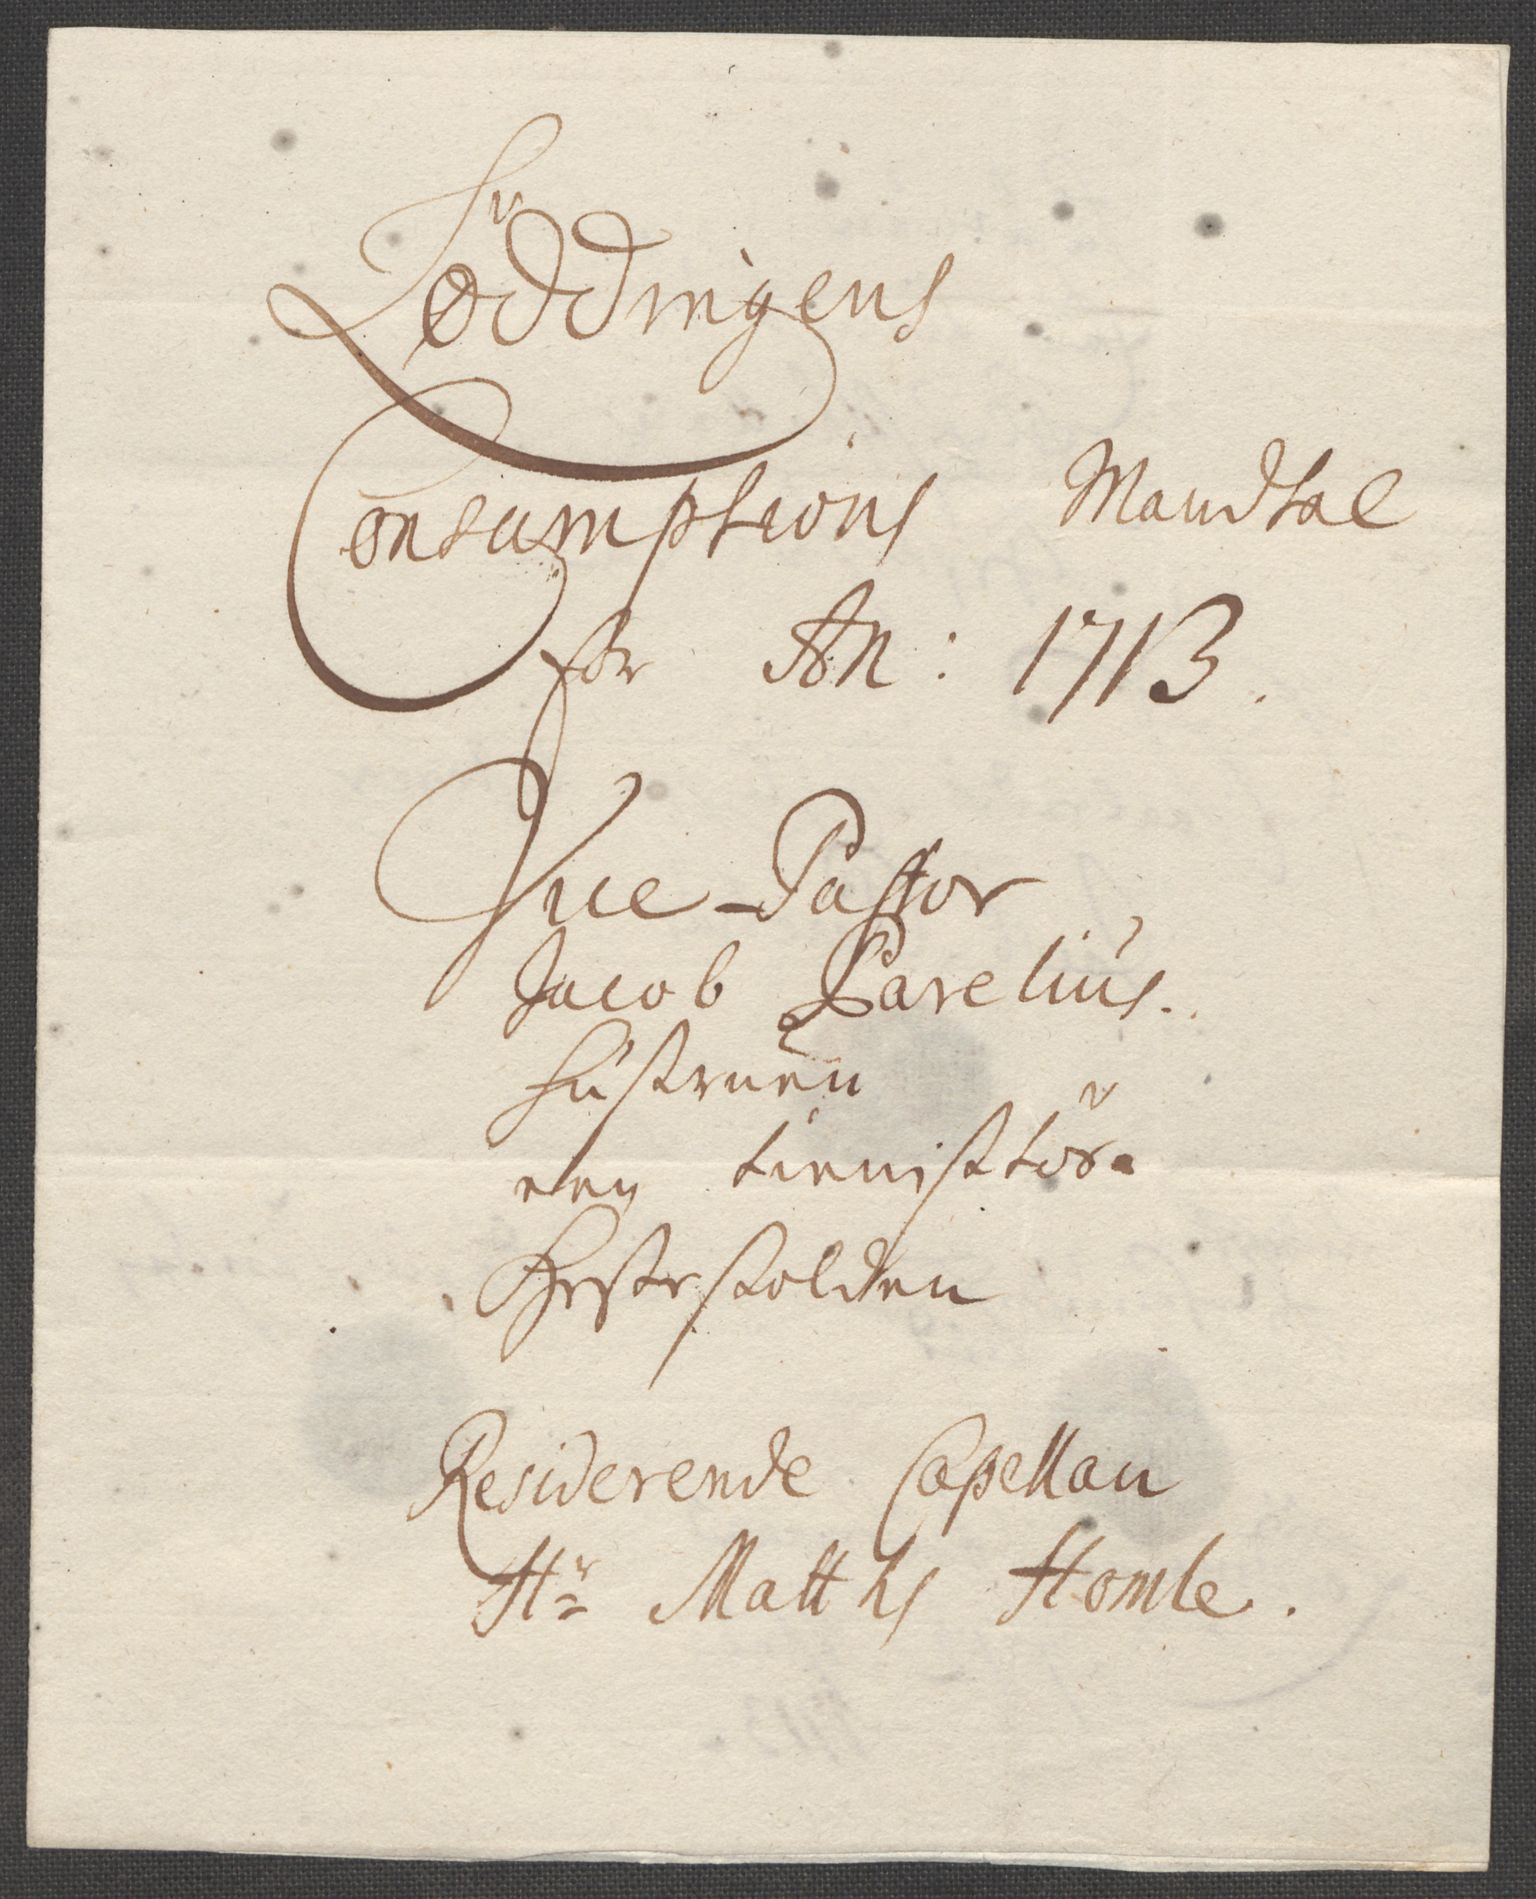 Löddingens
Consumptions Mandtal
for An: 1713.
Vice-Pastor
Jacob Parelius.
Hustruen
een tienist tös
Residerende Capellan
Hr Matths Homble.